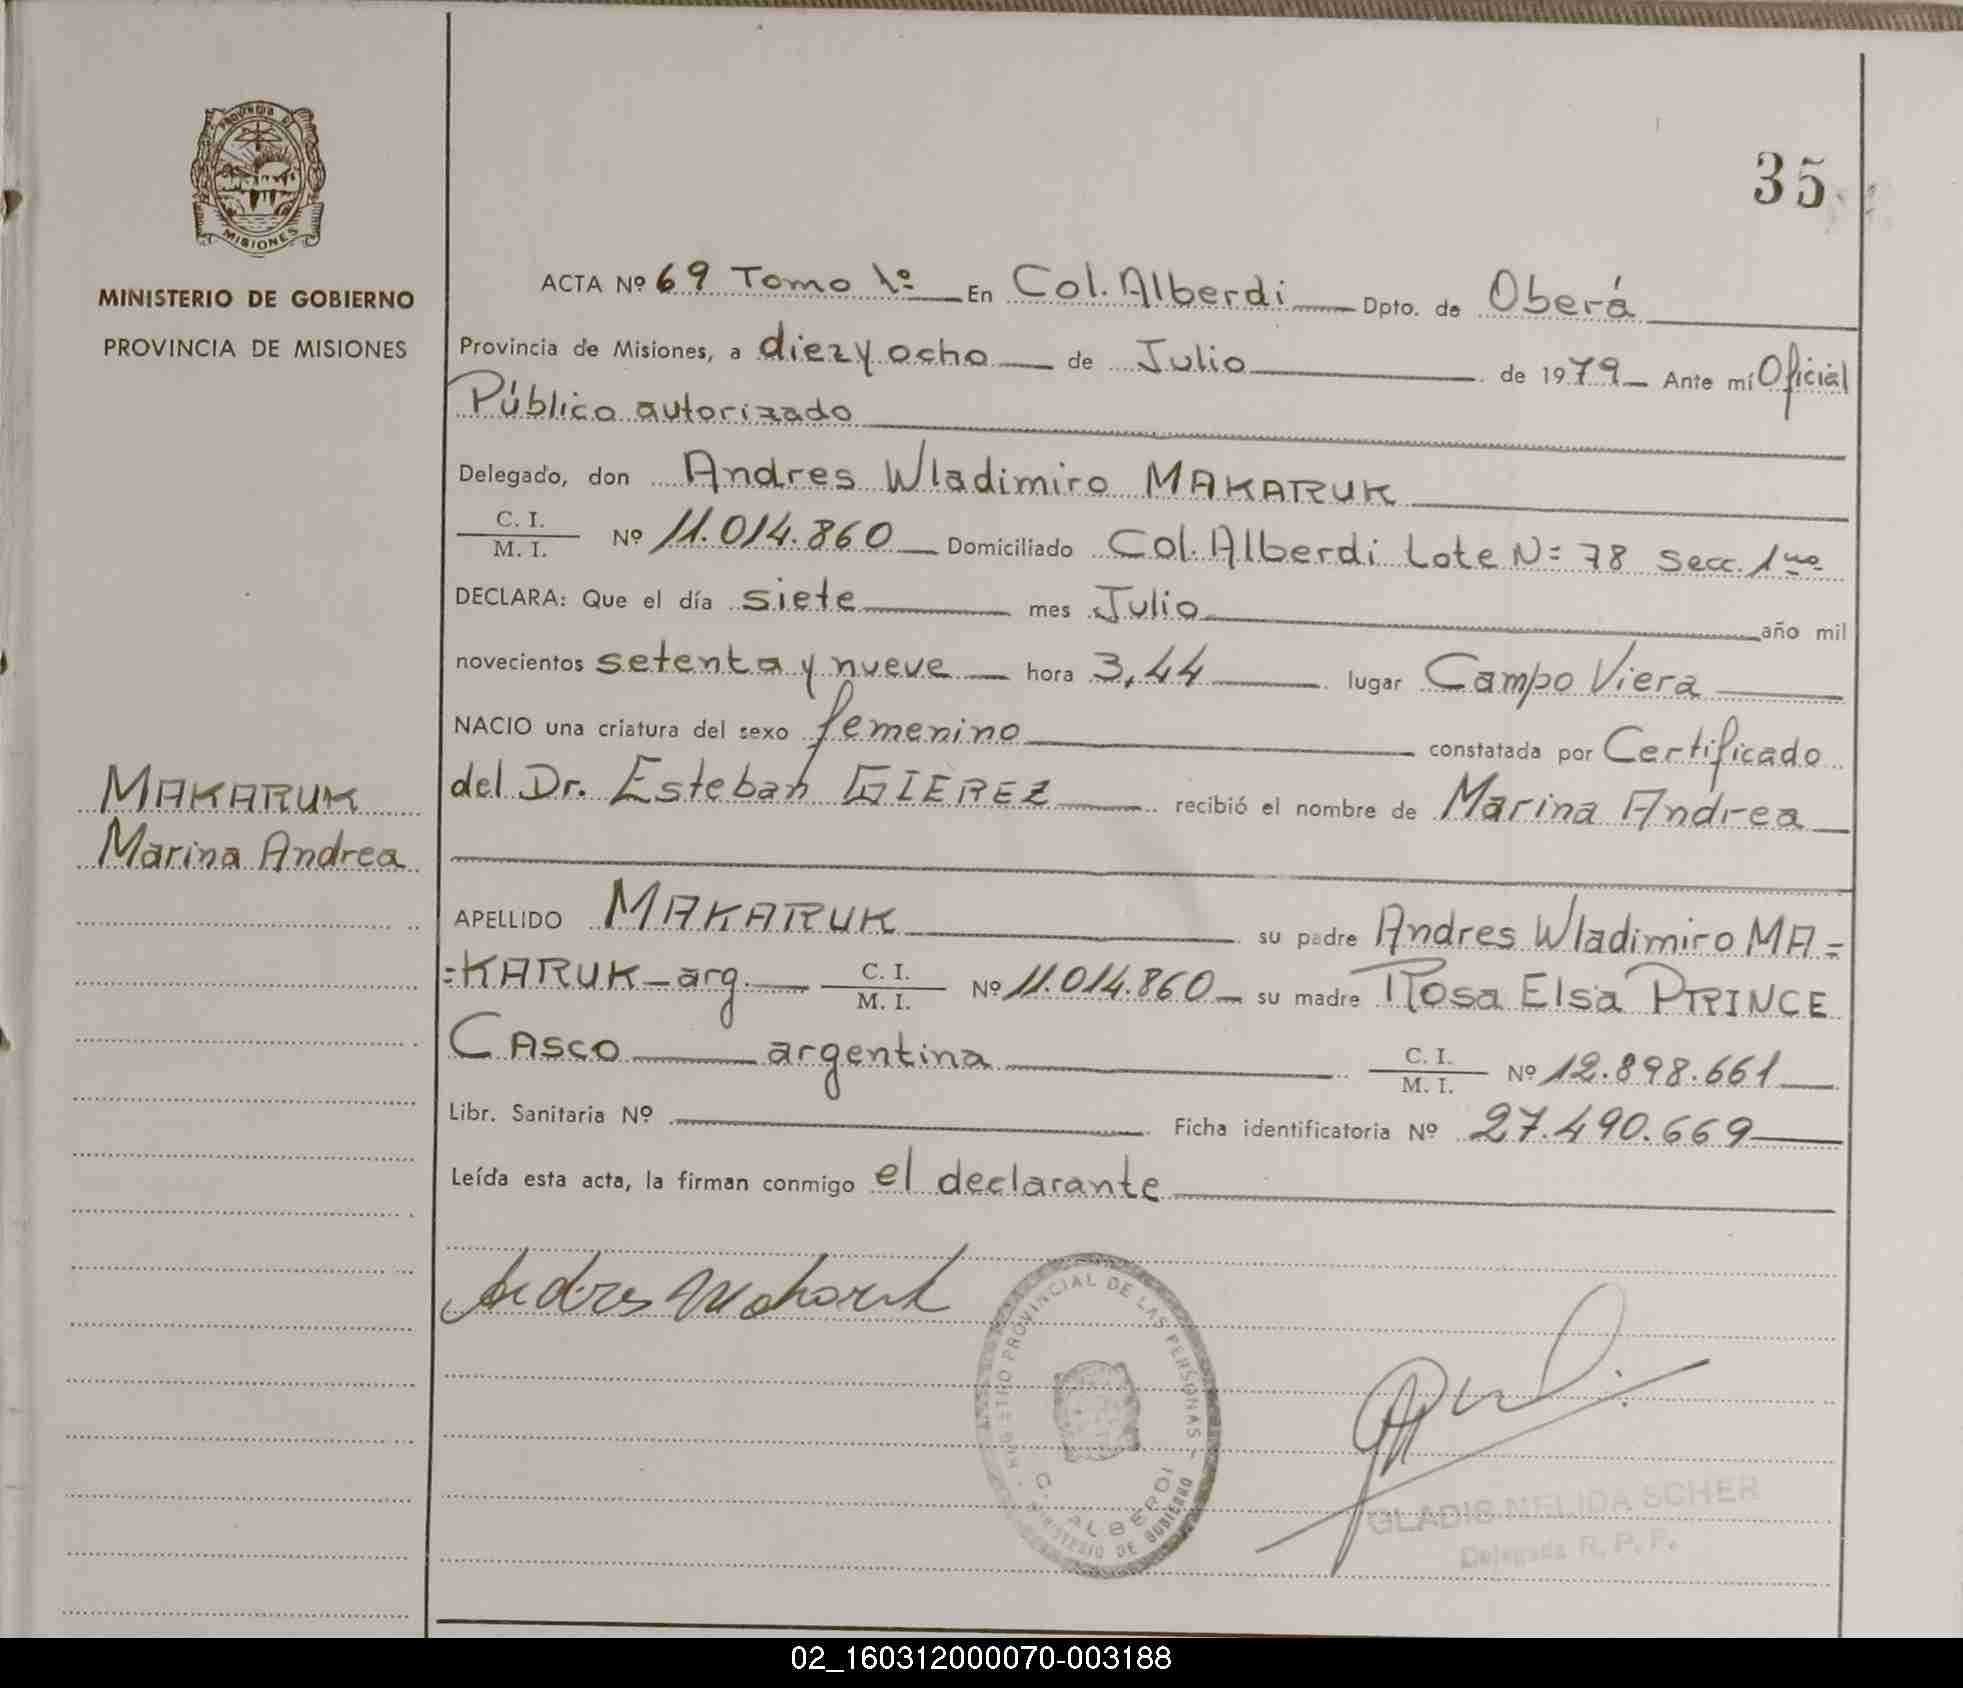 PROVINCIA DE
MISIONES
MINISTERIO DE GOBIERNO
PROVINCIA DE MISIONES
MAKARUK
Marina Andrea
35
ACTA Nº 69 Tomo 1º En Col. Alberdi Dpto. de Oberá
Provincia de Misiones, a diez y ocho de Julio de 1979 Ante mí Oficial
Público autorizado
Delegado, don Andres Wladimiro MAKARUK
C. I. / M. I. Nº 11.014.860 Domiciliado Col. Alberdi Lote N= 78 Secc. 1ra
DECLARA: Que el día siete mes Julio año mil
novecientos setenta y nueve hora 3,44 lugar Campo Viera
NACIO una criatura del sexo femenino constatada por Certificado
del Dr. Esteban GIEREZ recibió el nombre de Marina Andrea
APELLIDO MAKARUK su padre Andres Wladimiro MA=
=KARUK - arg. C. I. / M. I. Nº 11.014.860 su madre Rosa Elsa PRINCE
CASCO argentina C. I. / M. I. Nº 12.898.661
Libr. Sanitaria Nº Ficha identificatoria Nº 27.490.669
Leída esta acta, la firman conmigo el declarante
Andres Makaruk
REGISTRO PROVINCIAL DE LAS PERSONAS
C. ALBERDI
MINISTERIO DE GOBIERNO
GLADIS NELIDA SCHER
Delegada R. P. P.
02_160312000070-003188